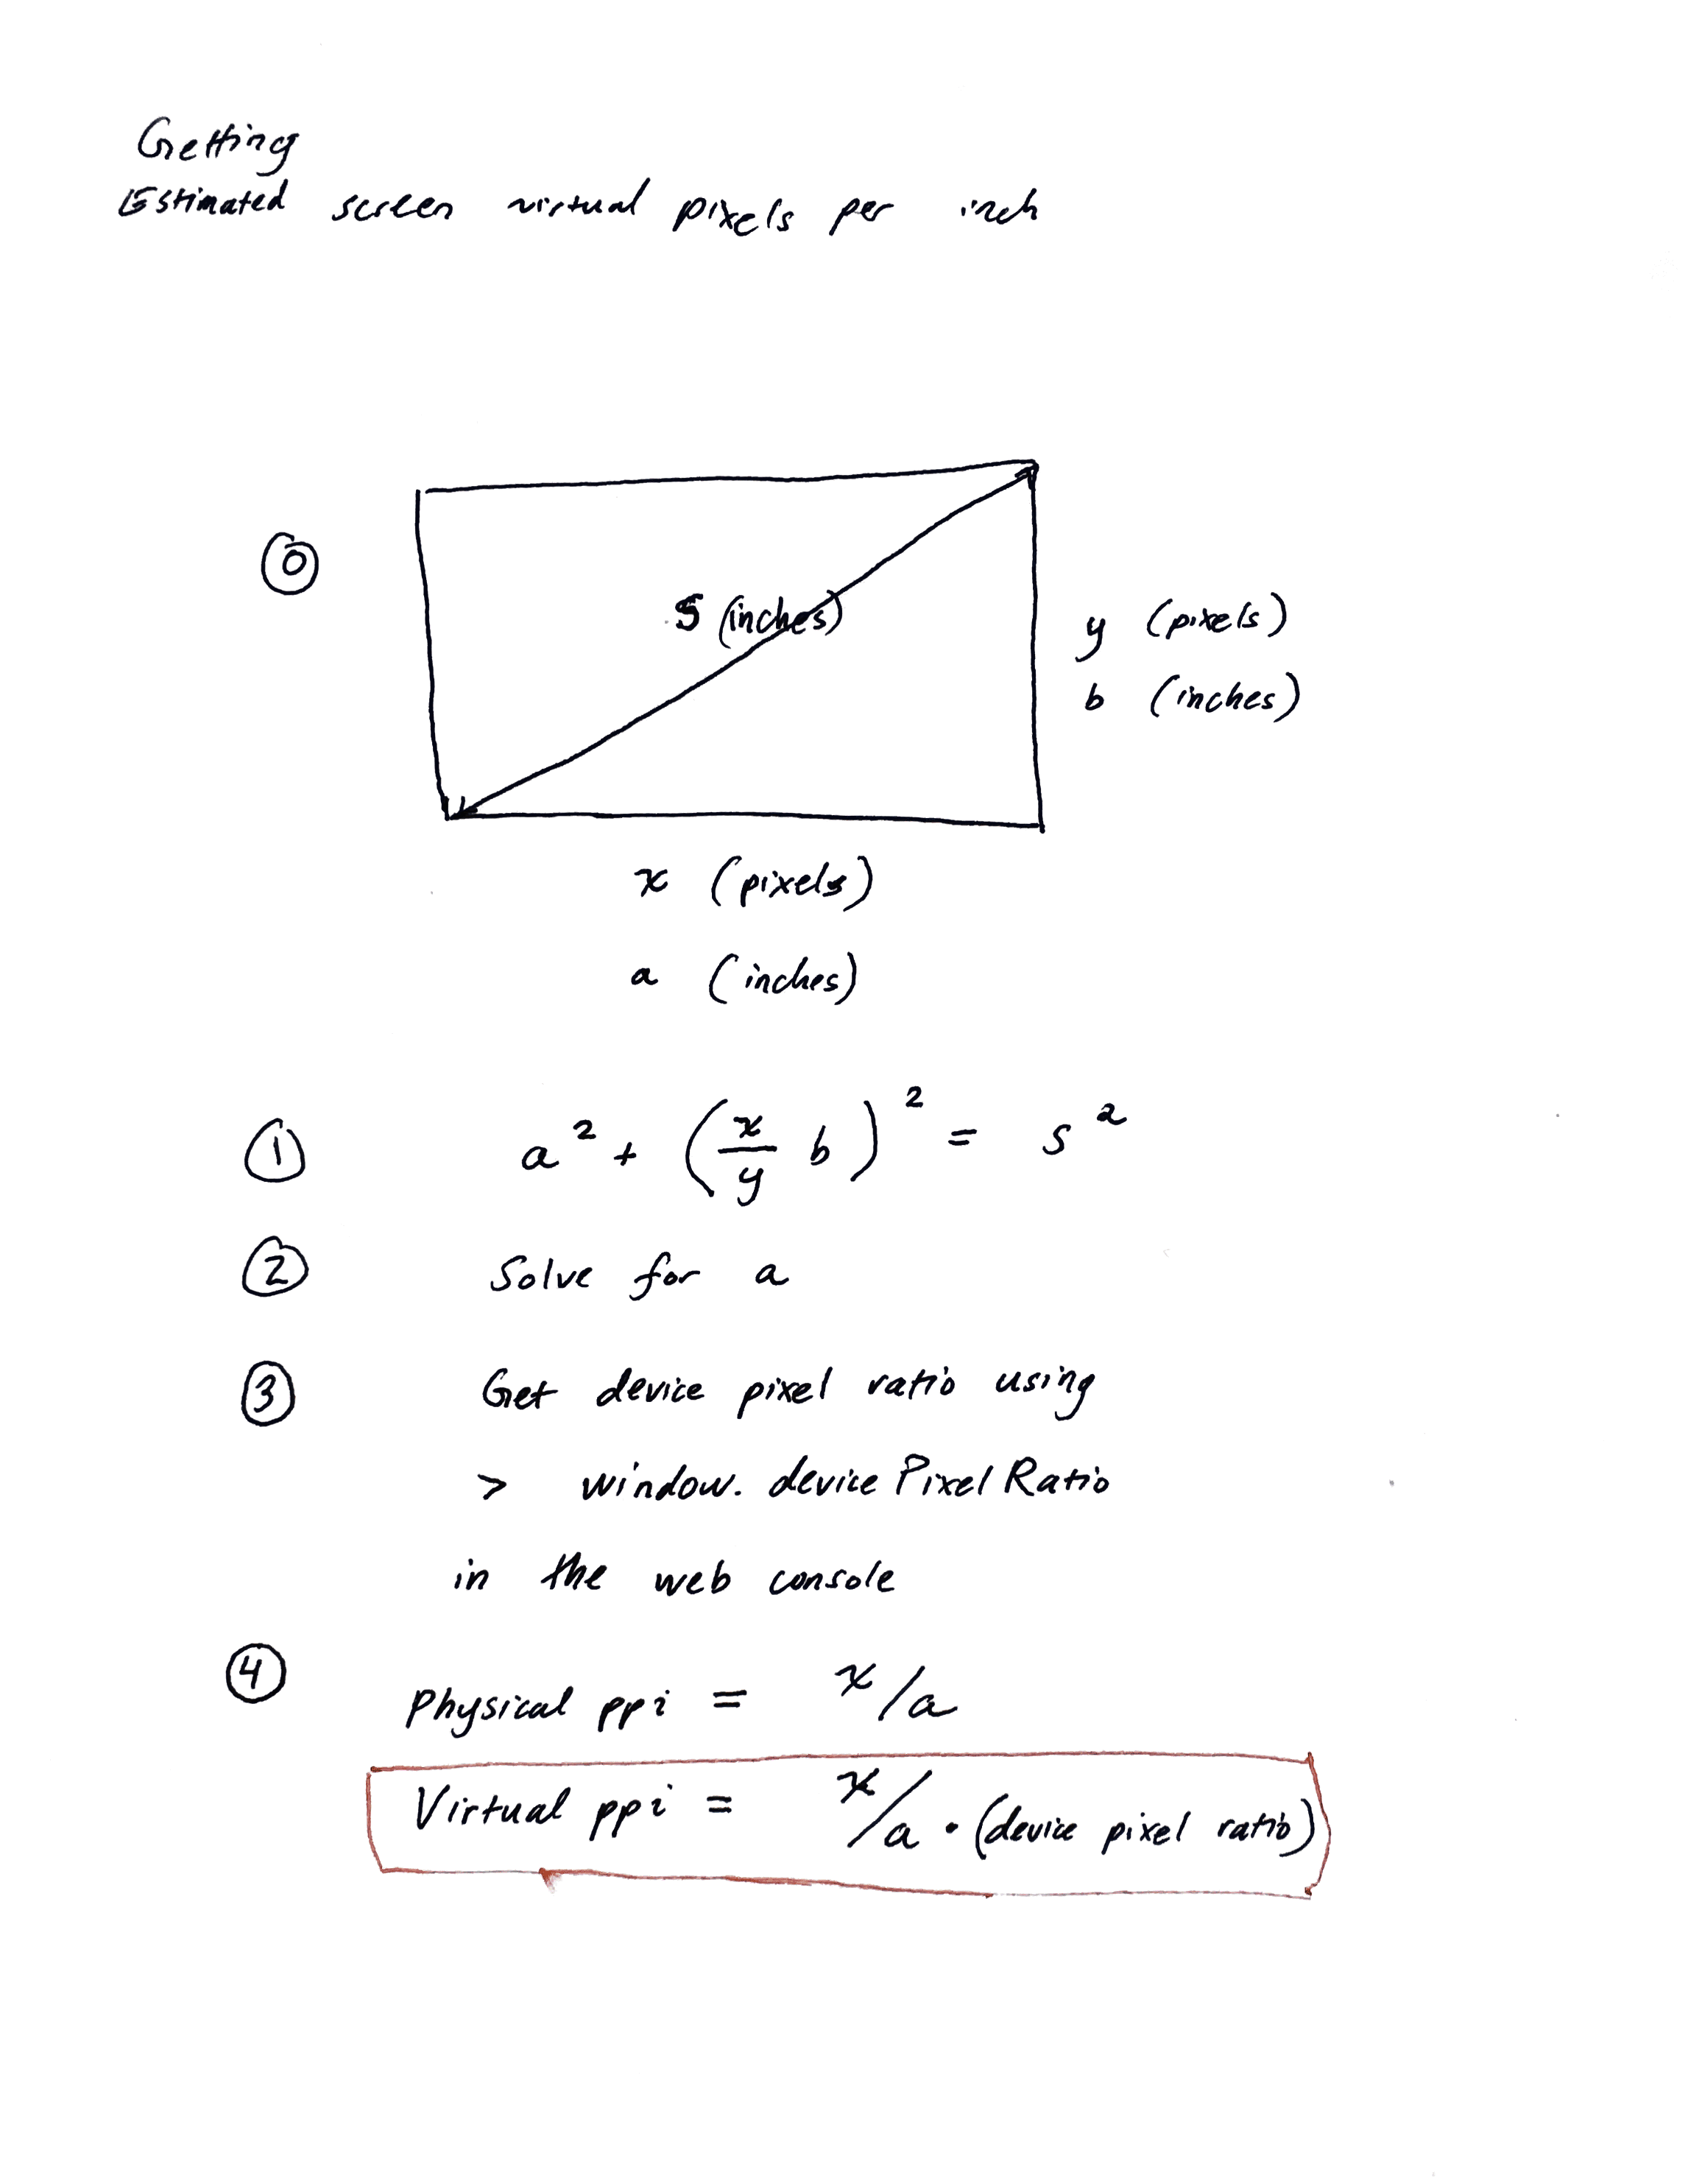 Getting
Estimated screen virtual pixels per inch
0
S (inches)
y (pixels)
b (inches)
x (pixels)
a (inches)
1 a² + (x/y b)² = s²
2 Solve for a
3 Get device pixel ratio using
> window.devicePixelRatio
in the web console
4
Physical ppi = x/a
Virtual ppi = x/a · (device pixel ratio)